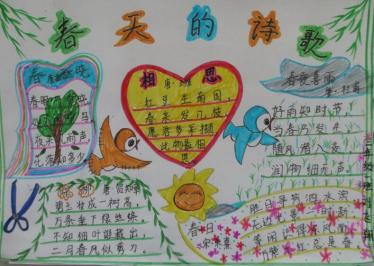 春天的诗歌
春眠不觉晓
夜来风雨声
花落知多少
相思
唐·王维
红豆生南国，
春来发几枝，
愿君多采撷
此物最相思
春夜喜雨
唐·杜甫
好雨知时节
当春乃发生
随风潜入夜
润物细无声
咏柳 唐·贺知章
碧玉妆成一树高
万条垂下绿丝绦
不知细叶谁裁出
二月春风似剪刀
春日
宋·朱熹
胜日寻芳泗水滨
无边光景一时新
等闲识得东风面
万紫千红总是春